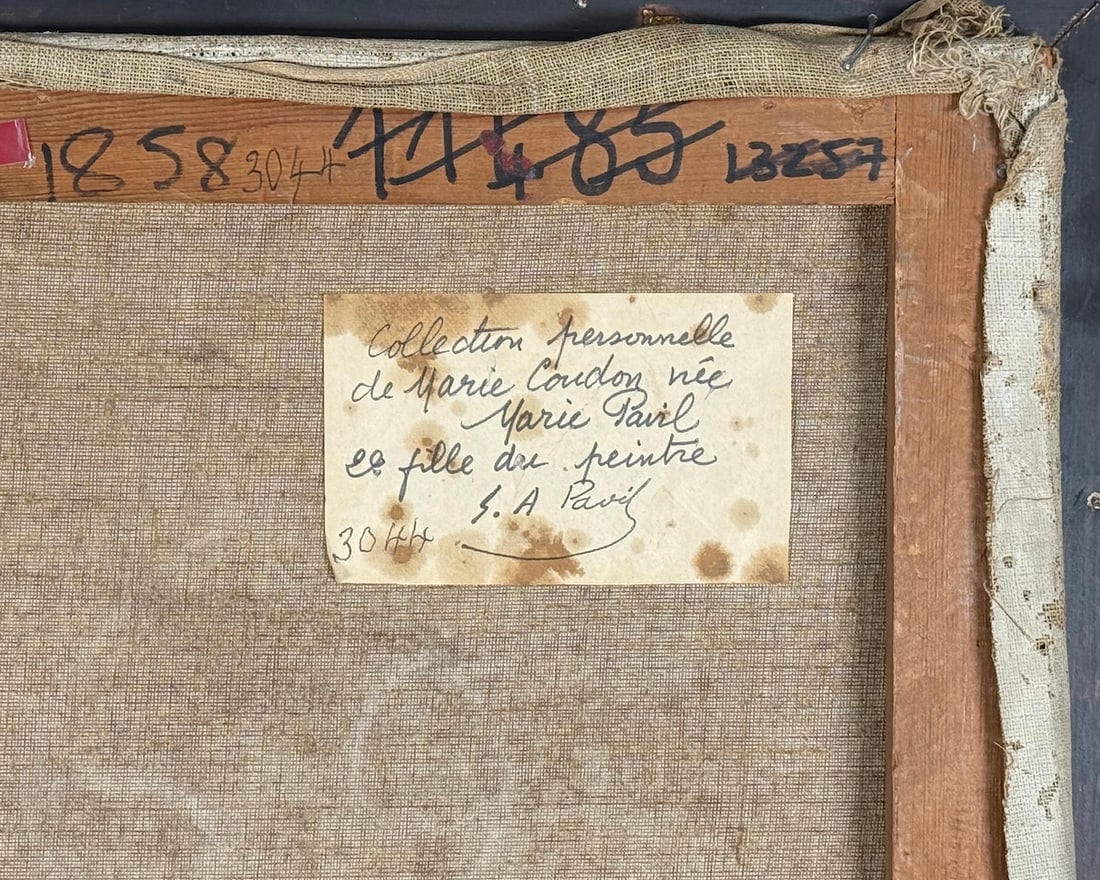 1858 3044 11485 13257
Collection personnelle
de Marie Coudon née
Marie Pavil
2e fille du peintre
S. A Pavil
3044